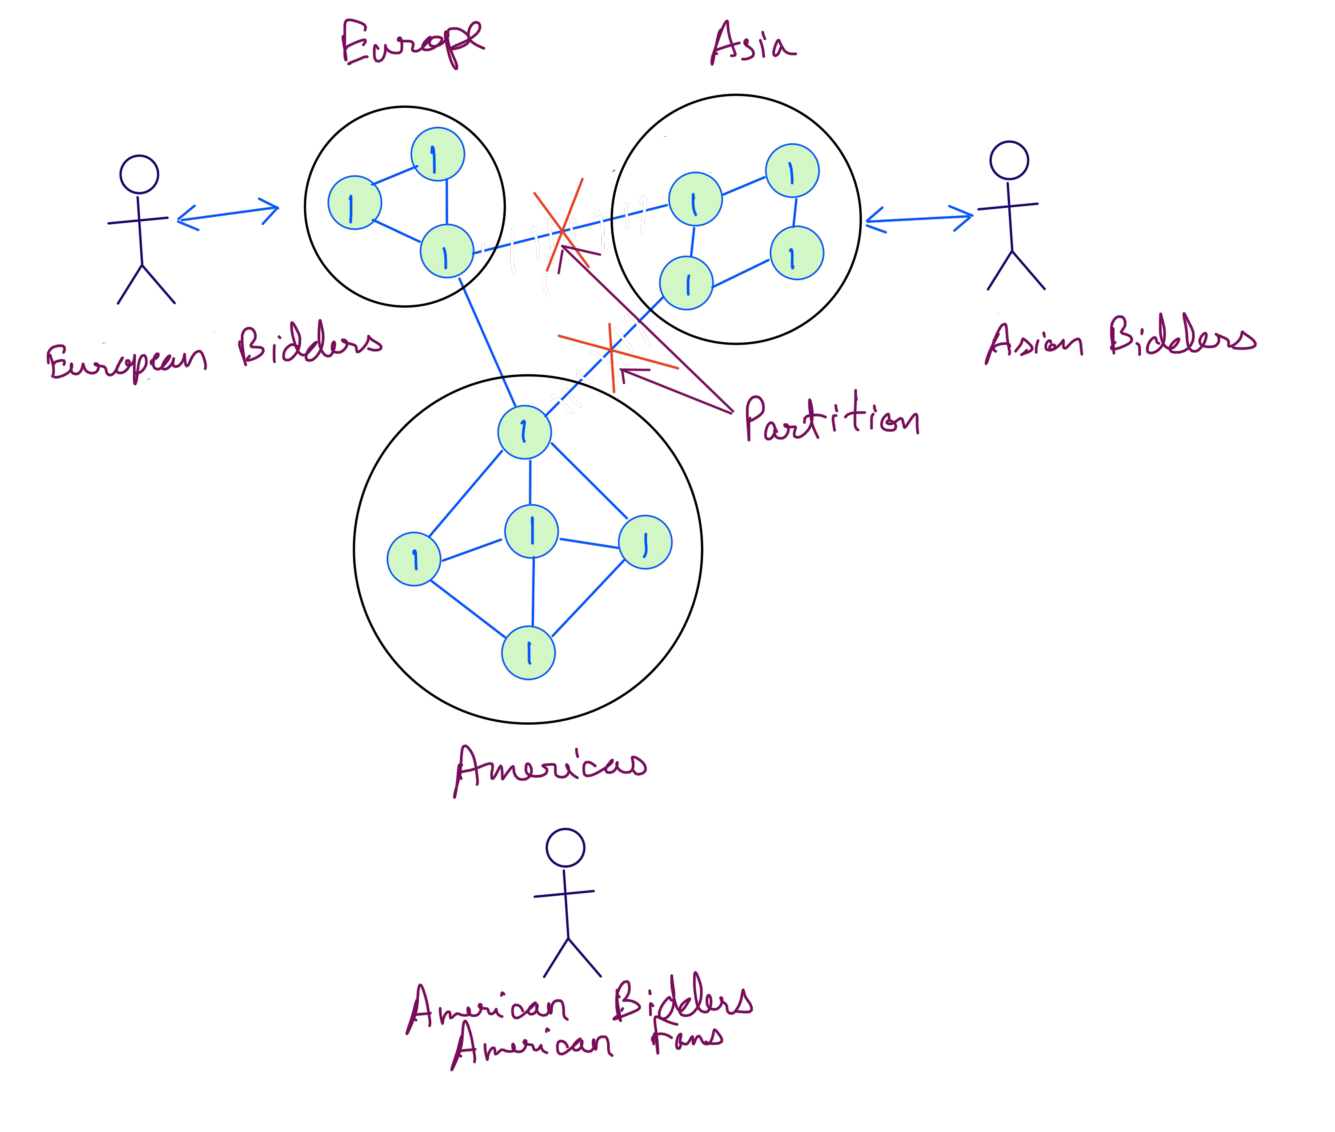 Europe
Asia
1
1
1
1
1
1
1
European Bidders
Asian Bidders
Partition
1
1
1
1
1
Americas
American Bidders
American Fans